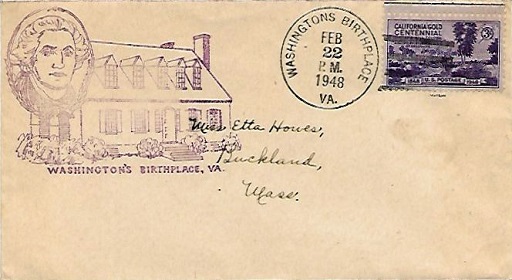 WASHINGTONS BIRTHPLACE
FEB
22
P.M.
1948
VA.
CALIFORNIA GOLD
CENTENNIAL
3¢
1848 U.S. POSTAGE 1948
Miss Etta Howes,
Buckland,
Mass.
WASHINGTON'S BIRTHPLACE, VA.